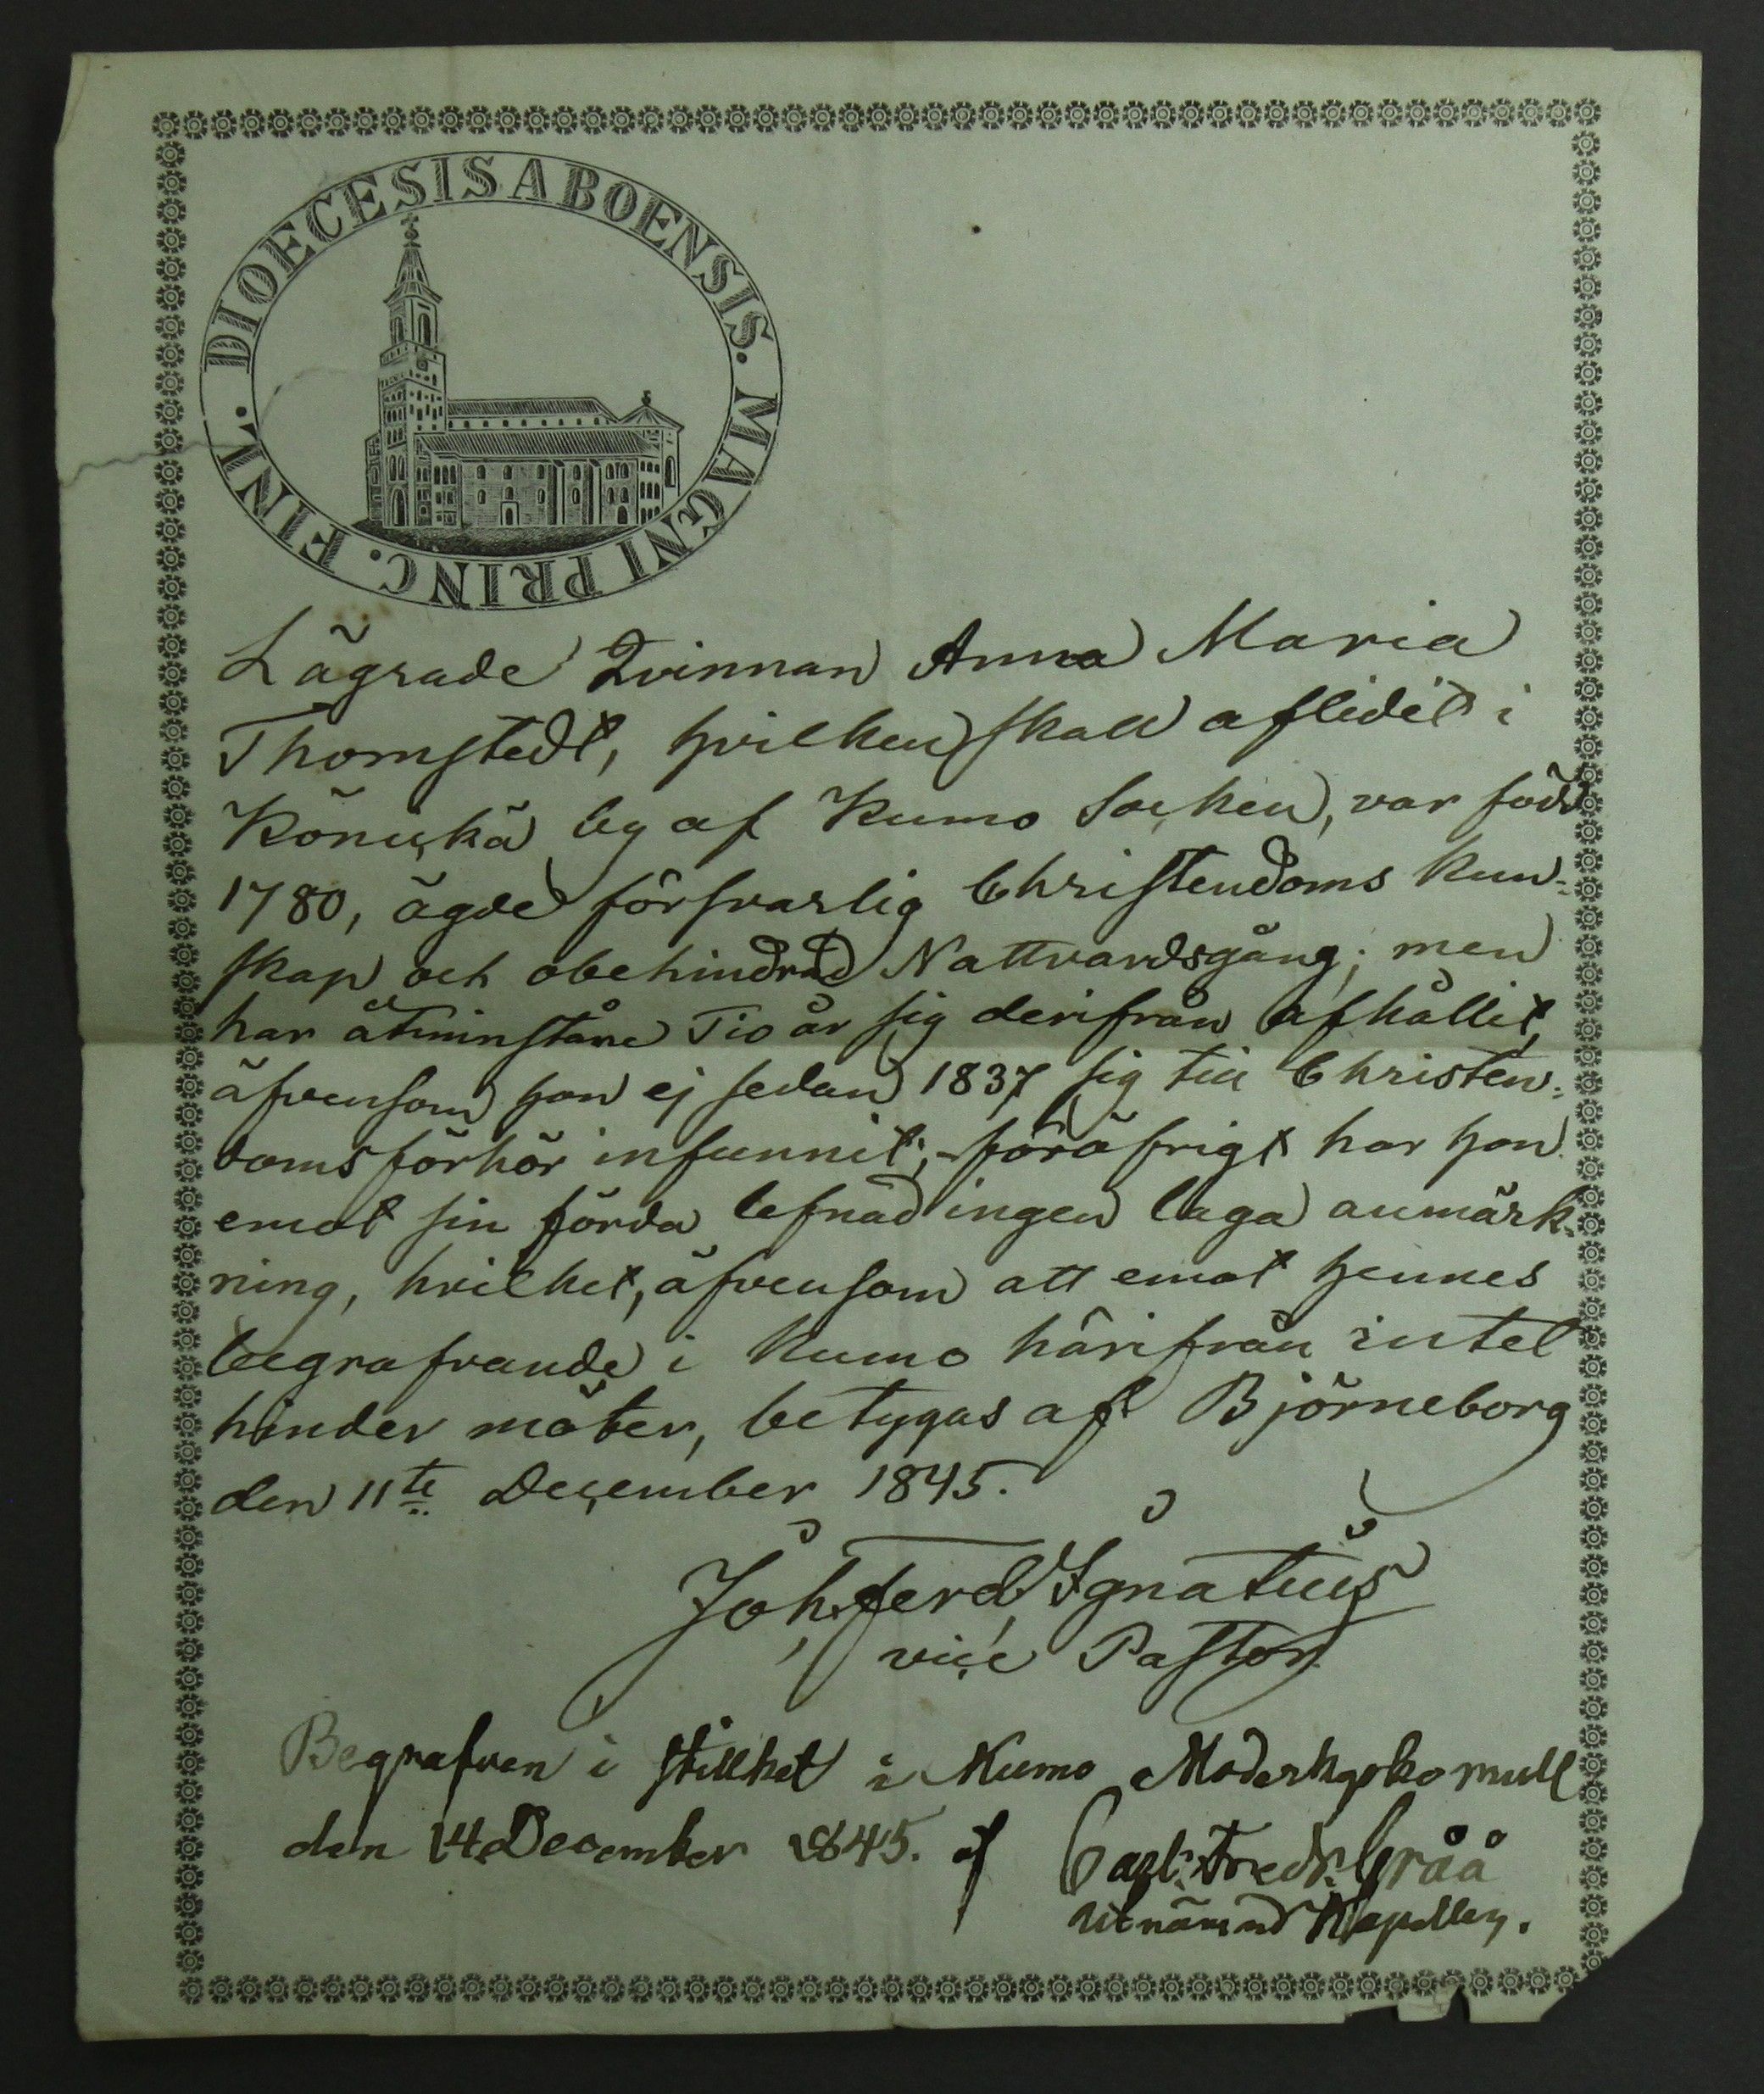 DIOECESIS ABOENSIS. MAGNI PRINC. FINL.
Lägrade Qvinnan Anna Maria
Thomstedt, hvilken skall aflidit i
Könickä by af Kumo Socken, var född
1780, ägde försvarlig Christendoms kun-
skap och obehindrad Nattvardsgång; men
har åtminstone Tio år sig derifrån afhållit,
äfvensom hon ej sedan 1837 sig till Christen-
domsförhör infunnit; föröfrigt har hon
emot sin förda lefnad ingen laga anmärk-
ning, hvilket, äfvensom att emot hennes
begrafvande i Kumo härifrån intet
hinder möter, betygas af Björneborg
den 11te December 1845.
Joh. Ferd. Ignatius
vice Pastor
Begrafven i stillhet i Kumo Moderkyrko mull
den 14 December 1845. af Carl Fredr. Gråå
Utnämnd Kapellan.